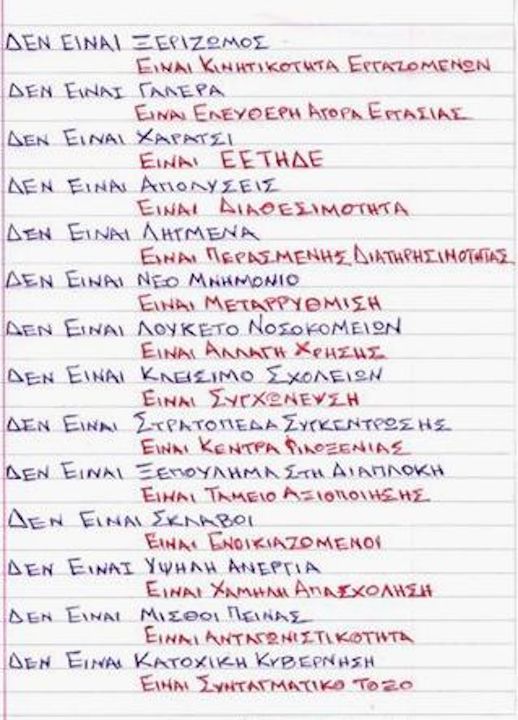 ΔΕΝ ΕΙΝΑΙ ΞΕΡΙΖΩΜΟΣ
ΕΙΝΑΙ ΚΙΝΗΤΙΚΟΤΗΤΑ ΕΡΓΑΖΟΜΕΝΩΝ
ΔΕΝ ΕΙΝΑΙ ΓΑΛΕΡΑ
ΕΙΝΑΙ ΕΛΕΥΘΕΡΗ ΑΓΟΡΑ ΕΡΓΑΣΙΑΣ
ΔΕΝ ΕΙΝΑΙ ΧΑΡΑΤΣΙ
ΕΙΝΑΙ ΕΕΤΗΔΕ
ΔΕΝ ΕΙΝΑΙ ΑΠΟΛΥΣΕΙΣ
ΕΙΝΑΙ ΔΙΑΘΕΣΙΜΟΤΗΤΑ
ΔΕΝ ΕΙΝΑΙ ΛΗΓΜΕΝΑ
ΕΙΝΑΙ ΠΕΡΑΣΜΕΝΗΣ ΔΙΑΤΗΡΗΣΙΜΟΤΗΤΑΣ
ΔΕΝ ΕΙΝΑΙ ΝΕΟ ΜΝΗΜΟΝΙΟ
ΕΙΝΑΙ ΜΕΤΑΡΡΥΘΜΙΣΗ
ΔΕΝ ΕΙΝΑΙ ΛΟΥΚΕΤΟ ΝΟΣΟΚΟΜΕΙΩΝ
ΕΙΝΑΙ ΑΛΛΑΓΗ ΧΡΗΣΗΣ
ΔΕΝ ΕΙΝΑΙ ΚΛΕΙΣΙΜΟ ΣΧΟΛΕΙΩΝ
ΕΙΝΑΙ ΣΥΓΧΩΝΕΥΣΗ
ΔΕΝ ΕΙΝΑΙ ΣΤΡΑΤΟΠΕΔΑ ΣΥΓΚΕΝΤΡΩΣΗΣ
ΕΙΝΑΙ ΚΕΝΤΡΑ ΦΙΛΟΞΕΝΙΑΣ
ΔΕΝ ΕΙΝΑΙ ΞΕΠΟΥΛΗΜΑ ΣΤΗ ΔΙΑΠΛΟΚΗ
ΕΙΝΑΙ ΤΑΜΕΙΟ ΑΞΙΟΠΟΙΗΣΗΣ
ΔΕΝ ΕΙΝΑΙ ΣΚΛΑΒΟΙ
ΕΙΝΑΙ ΕΝΟΙΚΙΑΖΟΜΕΝΟΙ
ΔΕΝ ΕΙΝΑΙ ΥΨΗΛΗ ΑΝΕΡΓΙΑ
ΕΙΝΑΙ ΧΑΜΗΛΗ ΑΠΑΣΧΟΛΗΣΗ
ΔΕΝ ΕΙΝΑΙ ΜΙΣΘΟΙ ΠΕΙΝΑΣ
ΕΙΝΑΙ ΑΝΤΑΓΩΝΙΣΤΙΚΟΤΗΤΑ
ΔΕΝ ΕΙΝΑΙ ΚΑΤΟΧΙΚΗ ΚΥΒΕΡΝΗΣΗ
ΕΙΝΑΙ ΣΥΝΤΑΓΜΑΤΙΚΟ ΤΟΞΟ